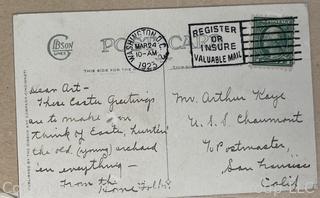 GIBSON
LINES
POSTCARD
WASHINGTON, D.C.
MAR 24
10-AM
1923
REGISTER
OR
INSURE
VALUABLE MAIL
THIS SIDE FOR THE
Dear Art-
These Easter Greetings
are to make you
think of Easter, huntin'
the old (young) orchard
an everything -
From the
Home Folks
Mr. Arthur Kaye
U.S.S. Chaumont
% Postmaster,
San Francisco
Calif